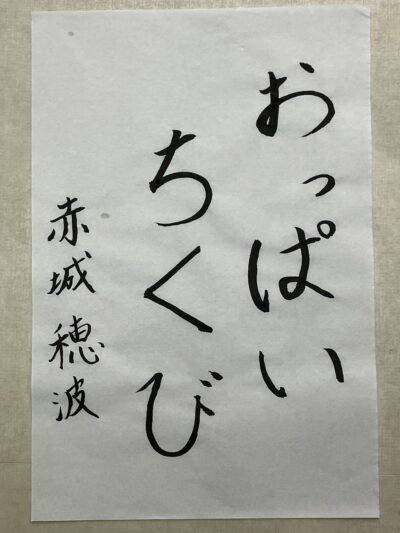 おっぱい
ちくび
赤城穂波